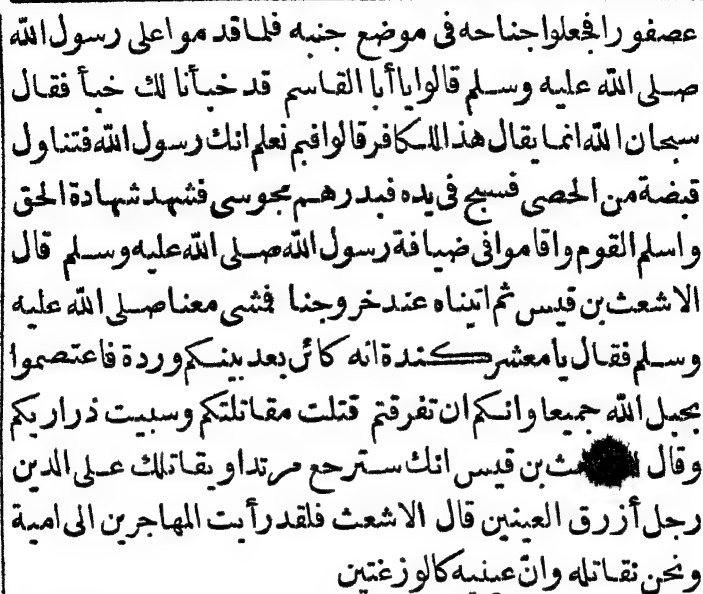 عصفورا فجعلوا جناحه فى موضع جنبه فلما قدموا على رسول الله
صلى الله عليه وسلم قالوا يا أبا القاسم قد خبأنا لك خبأ فقال
سبحان الله انما يقال هذا للكافر قالوا فبم نعلم انك رسول الله فتناول
قبضة من الحصى فسبح فى يده فبدرهم مجوسى فشهد شهادة الحق
واسلم القوم واقاموا فى ضيافة رسول الله صلى الله عليه وسلم قال
الاشعث بن قيس ثم اتيناه عند خروجنا فمشى معنا صلى الله عليه
وسلم فقال يا معشر كندة انه كائن بعد بينكم وردة فاعتصموا
بحبل الله جميعا وانكم ان تفرقتم قتلت مقاتلتكم وسبيت ذراريكم
وقال بن قيس انك سترجع مرتدا ويقاتلك على الدين
رجل أزرق العينين قال الاشعث فلقد رأيت المهاجر بن ابى امية
ونحن نقاتله وانّ عينيه كالوزغتين